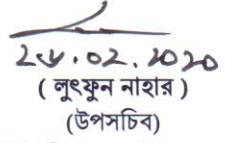 ২৬.০২.২০২০
( লুৎফুন নাহার )
(উপসচিব)